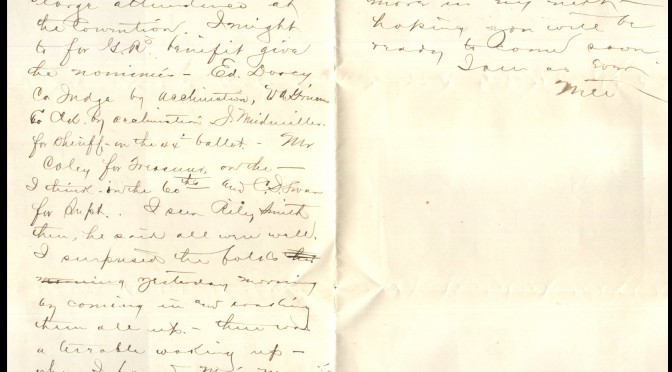 large attendance at
the Convention. I might
to for G.R's benefit give
the nominies - Ed. Dorsey
Co Judge by acclimation,
Co Ad. by acclimation S. Midmiller
for Sheriff - on the 44" ballot. - Mr
Coley for Treasurer, on the -
I think - on the 60th and C.S.
for Supt. . I seen Riley Smith
then, he said all were well.
I surprised the folks this
morning yesterday morning
by coming in and
them all up. - there was
a terrable waking up -
when I
more in my next
hoping you will be
ready to come soon
I am as ever